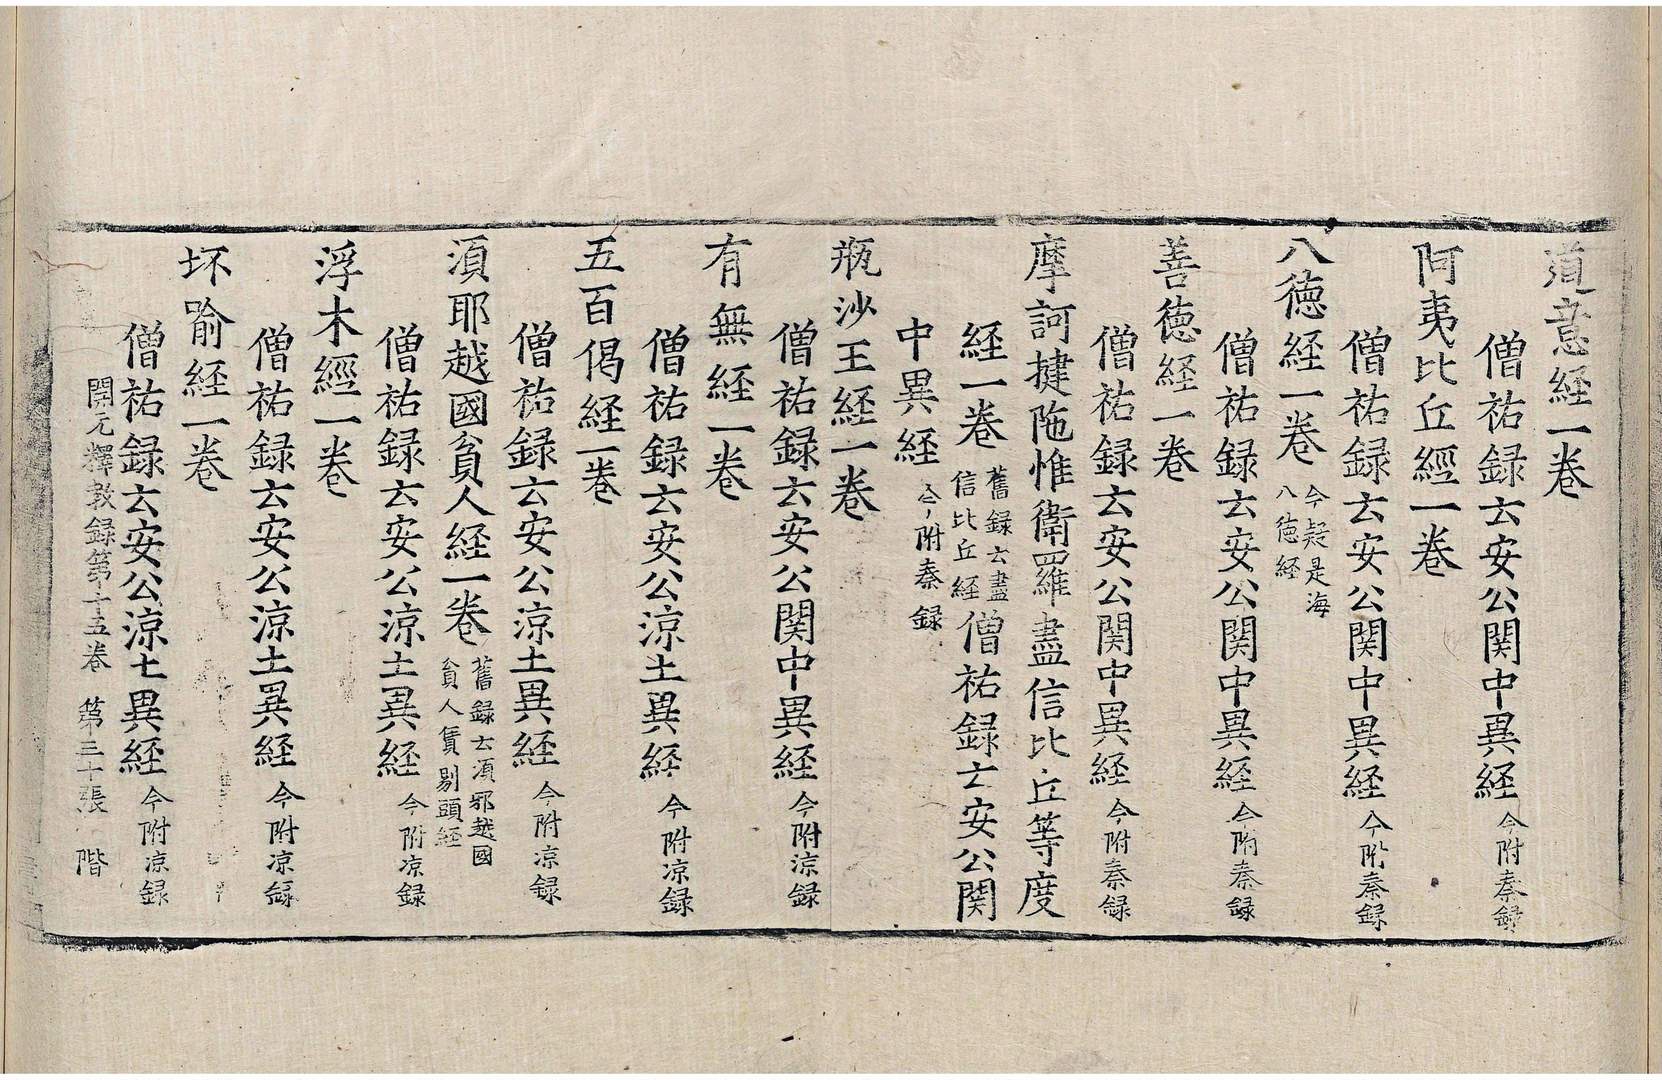 道意経一巻
僧祐録云安公関中異経今附秦録
阿夷比丘經一巻
僧祐録云安公関中異経今附秦録
八徳経一巻今疑是海八徳経
僧祐録云安公関中異経今附秦録
善徳経一巻
僧祐録云安公関中異経今附秦録
摩訶揵陁惟衛羅盡信比丘等度
経一巻舊録云盡信比丘経僧祐録云安公関
中異経今附秦録
瓶沙王経一巻
僧祐録云安公関中異経今附涼録
有無経一巻
僧祐録云安公涼土異経今附涼録
五百偈経一巻
僧祐録云安公涼土異経今附涼録
湏耶越國貧人経一巻舊録云湏邪越國貧人賃剔頭経
僧祐録云安公涼土異経今附涼録
浮木經一巻
僧祐録云安公涼土異経今附涼録
坏喻経一巻
僧祐録云安公涼土異経今附涼録
開元釋教録第十五巻　第三十張　階